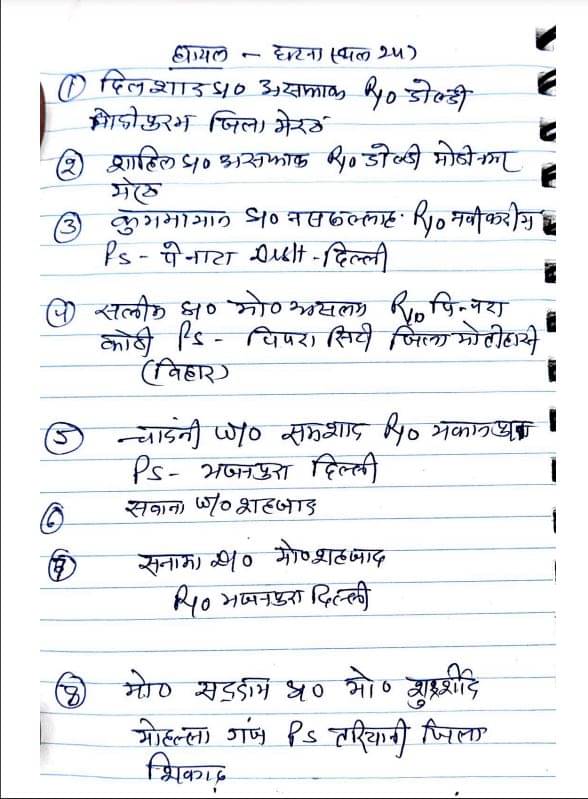 घायल - घटना स्थल 24)
① दिलशाद S/o असफाक R/o डोल्डी
जिला मेरठ
② शाहिल S/o असफाक R/o डोल्डी मोदीनगर
मेरठ
③ S/o R/o नबी करीम
Ps - Distt - दिल्ली
④ सलीम S/o मो० असलम R/o
कोठी Ps - सिटी जिला मोतीहारी
(बिहार)
⑤ चाडंनी W/o समशाद R/o
Ps - भजनपुरा दिल्ली
⑥ सबाना W/o शहजाद
⑦ सनामा D/o मो० शहजाद
R/o भजनपुरा दिल्ली
⑧ मो० सद्दाम S/o मो०
मोहल्ला गंज Ps तरियानी जिला